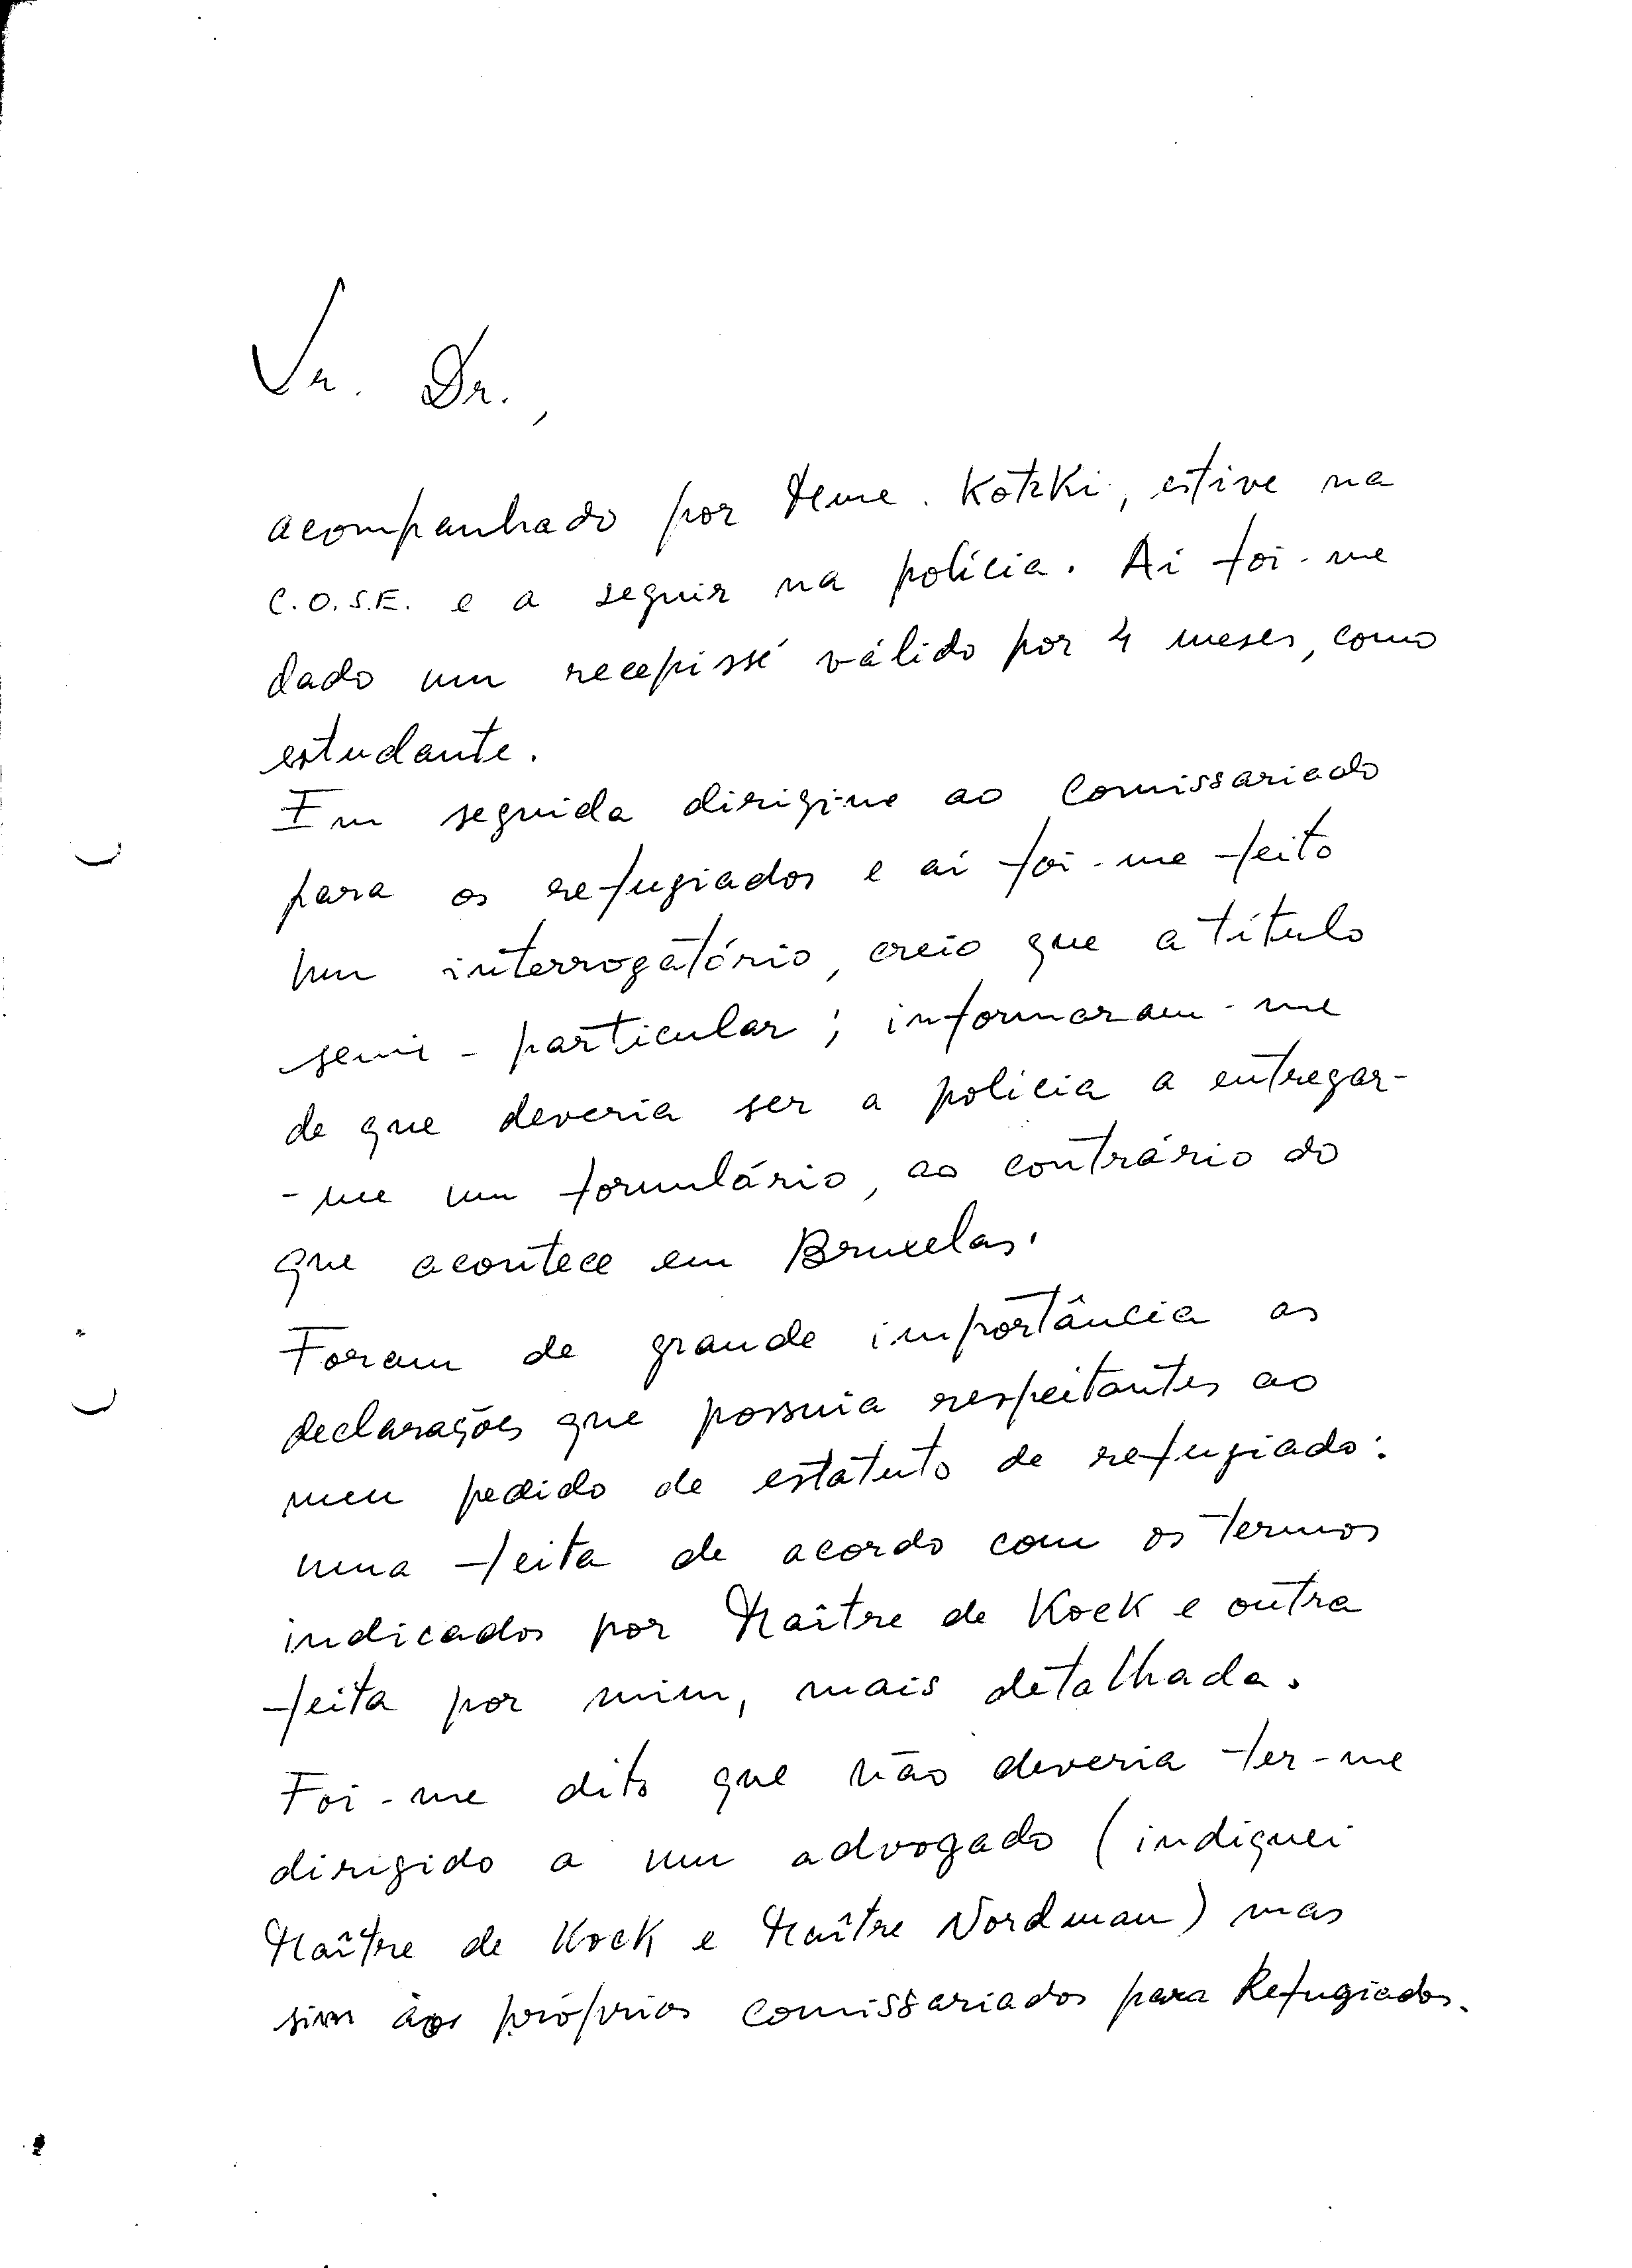 Sr. Dr.,
acompanhado por Mme. Kotzki, estive na
C.O.S.E. e a seguir na polícia. Aí foi-me
dado um recepissé válido por 4 meses, como
estudante.
Em seguida dirigi-me ao Comissariado
para os refugiados e aí foi-me feito
um interrogatório, creio que a título
semi-particular; informaram-me
de que deveria ser a polícia a entregar-
-me um formulário, ao contrário do
que acontece em Bruxelas.
Foram de grande importância as
declarações que possuia respeitantes ao
meu pedido de estatuto de refugiado:
uma feita de acordo com os termos
indicados por Maître de Kock e outra
feita por mim, mais detalhada.
Foi-me dito que não deveria ter-me
dirigido a um advogado (indiquei
Maître de Kock e Maître Nordman) mas
sim aos próprios comissariados para Refugiados.